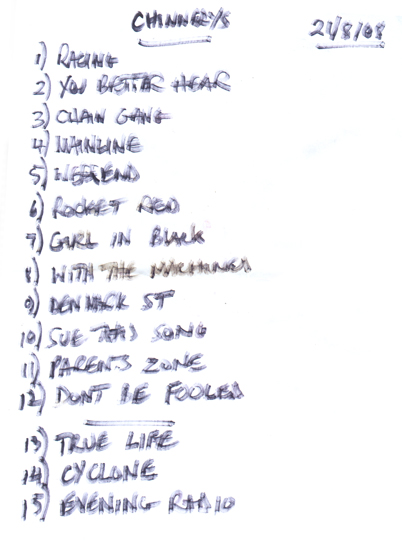 CHINNERYS
21/8/08
1) RACING
2) YOU BETTER HEAR
3) CHAIN GANG
4) MAINLINE
5) WEEKEND
6) ROCKET RED
7) GIRL IN BLACK
8) WITH THE
9) DENMARK ST
10) SUE THIS SONG
11) PARENTS ZONE
12) DONT BE FOOLED
13) TRUE LIFE
14) CYCLONE
15) EVENING RADIO